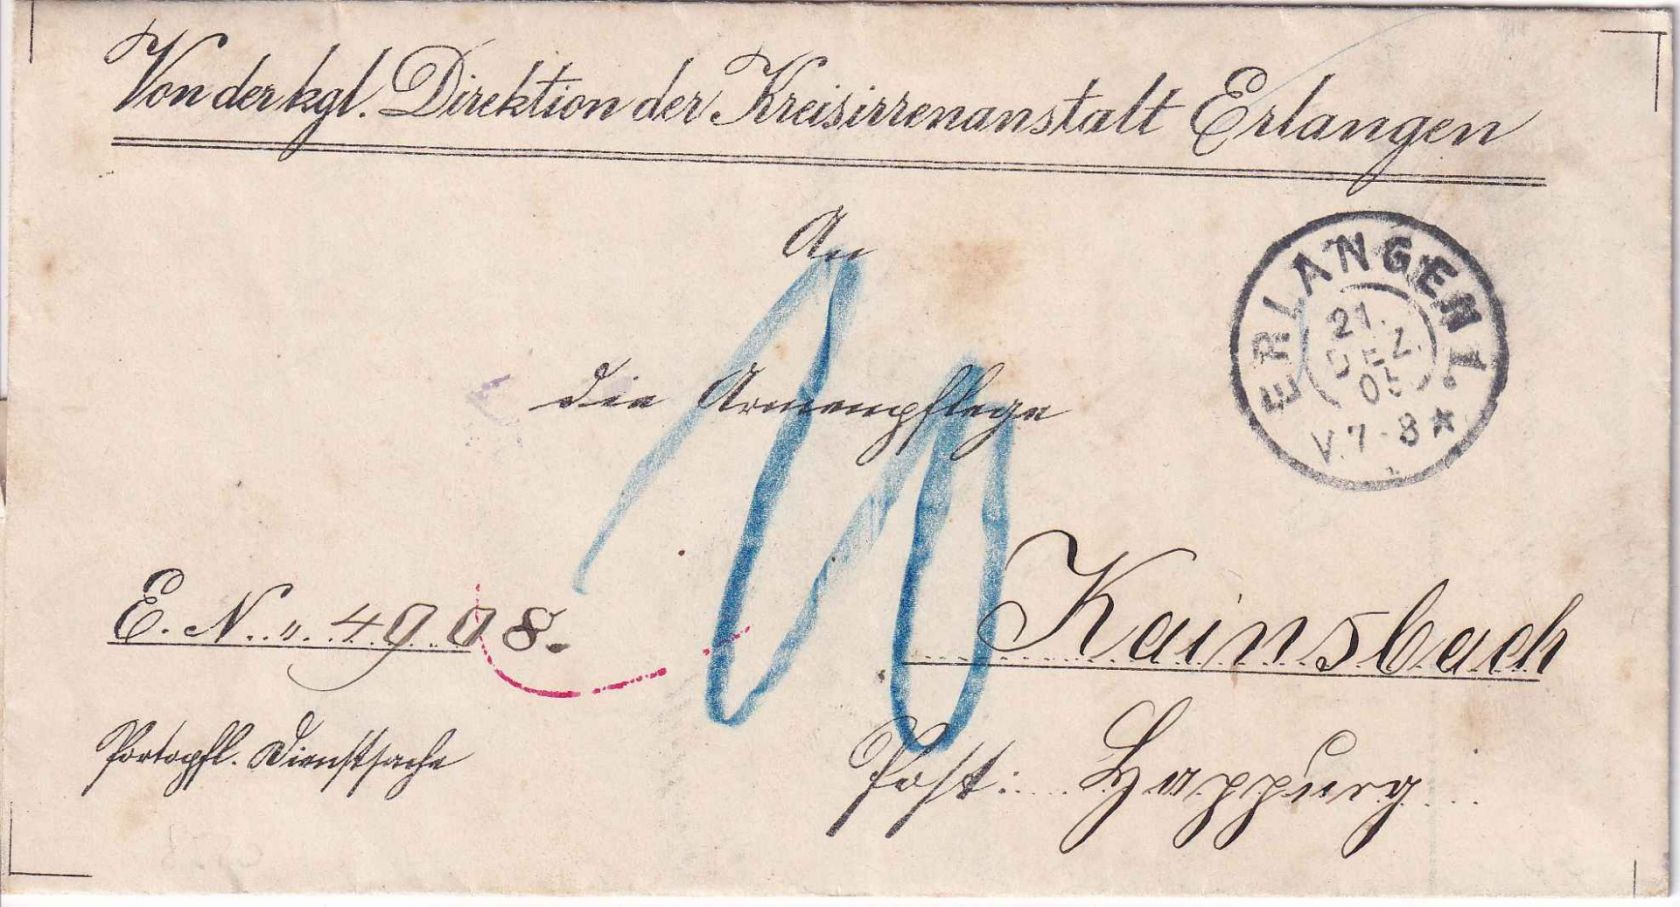 Von der kgl. Direktion der Kreisirrenanstalt Erlangen
An
die Armenpflege
ERLANGEN 1.
21.
DEZ.
05
V. 7-8 ★
E. N. „ 4908.
Kainsbach
Portopfl. Dienstsache
Post: Happurg
10